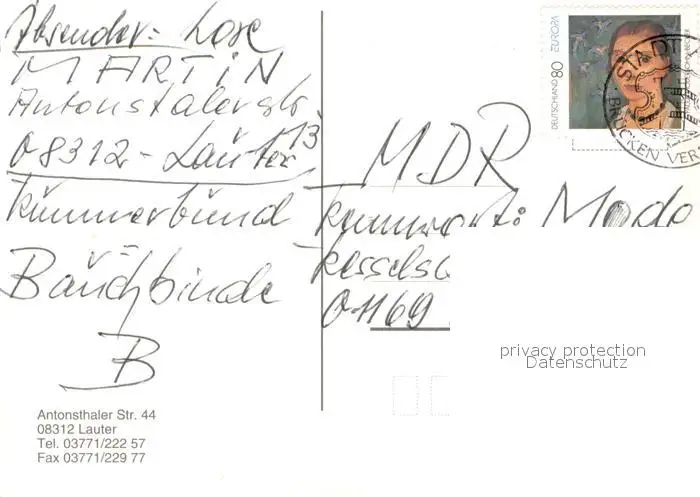 Absender: Lose
MARTIN
Antonstalerstr
13
08312 - Lauter
Kummerbund
Bauchbinde
B
Antonsthaler Str. 44
08312 Lauter
Tel. 03771/222 57
Fax 03771/229 77
DEUTSCHLAND 80 EUROPA
STADT
BRÜCKEN VER
MDR
Kennwort: Mode
01169
privacy protection
Datenschutz